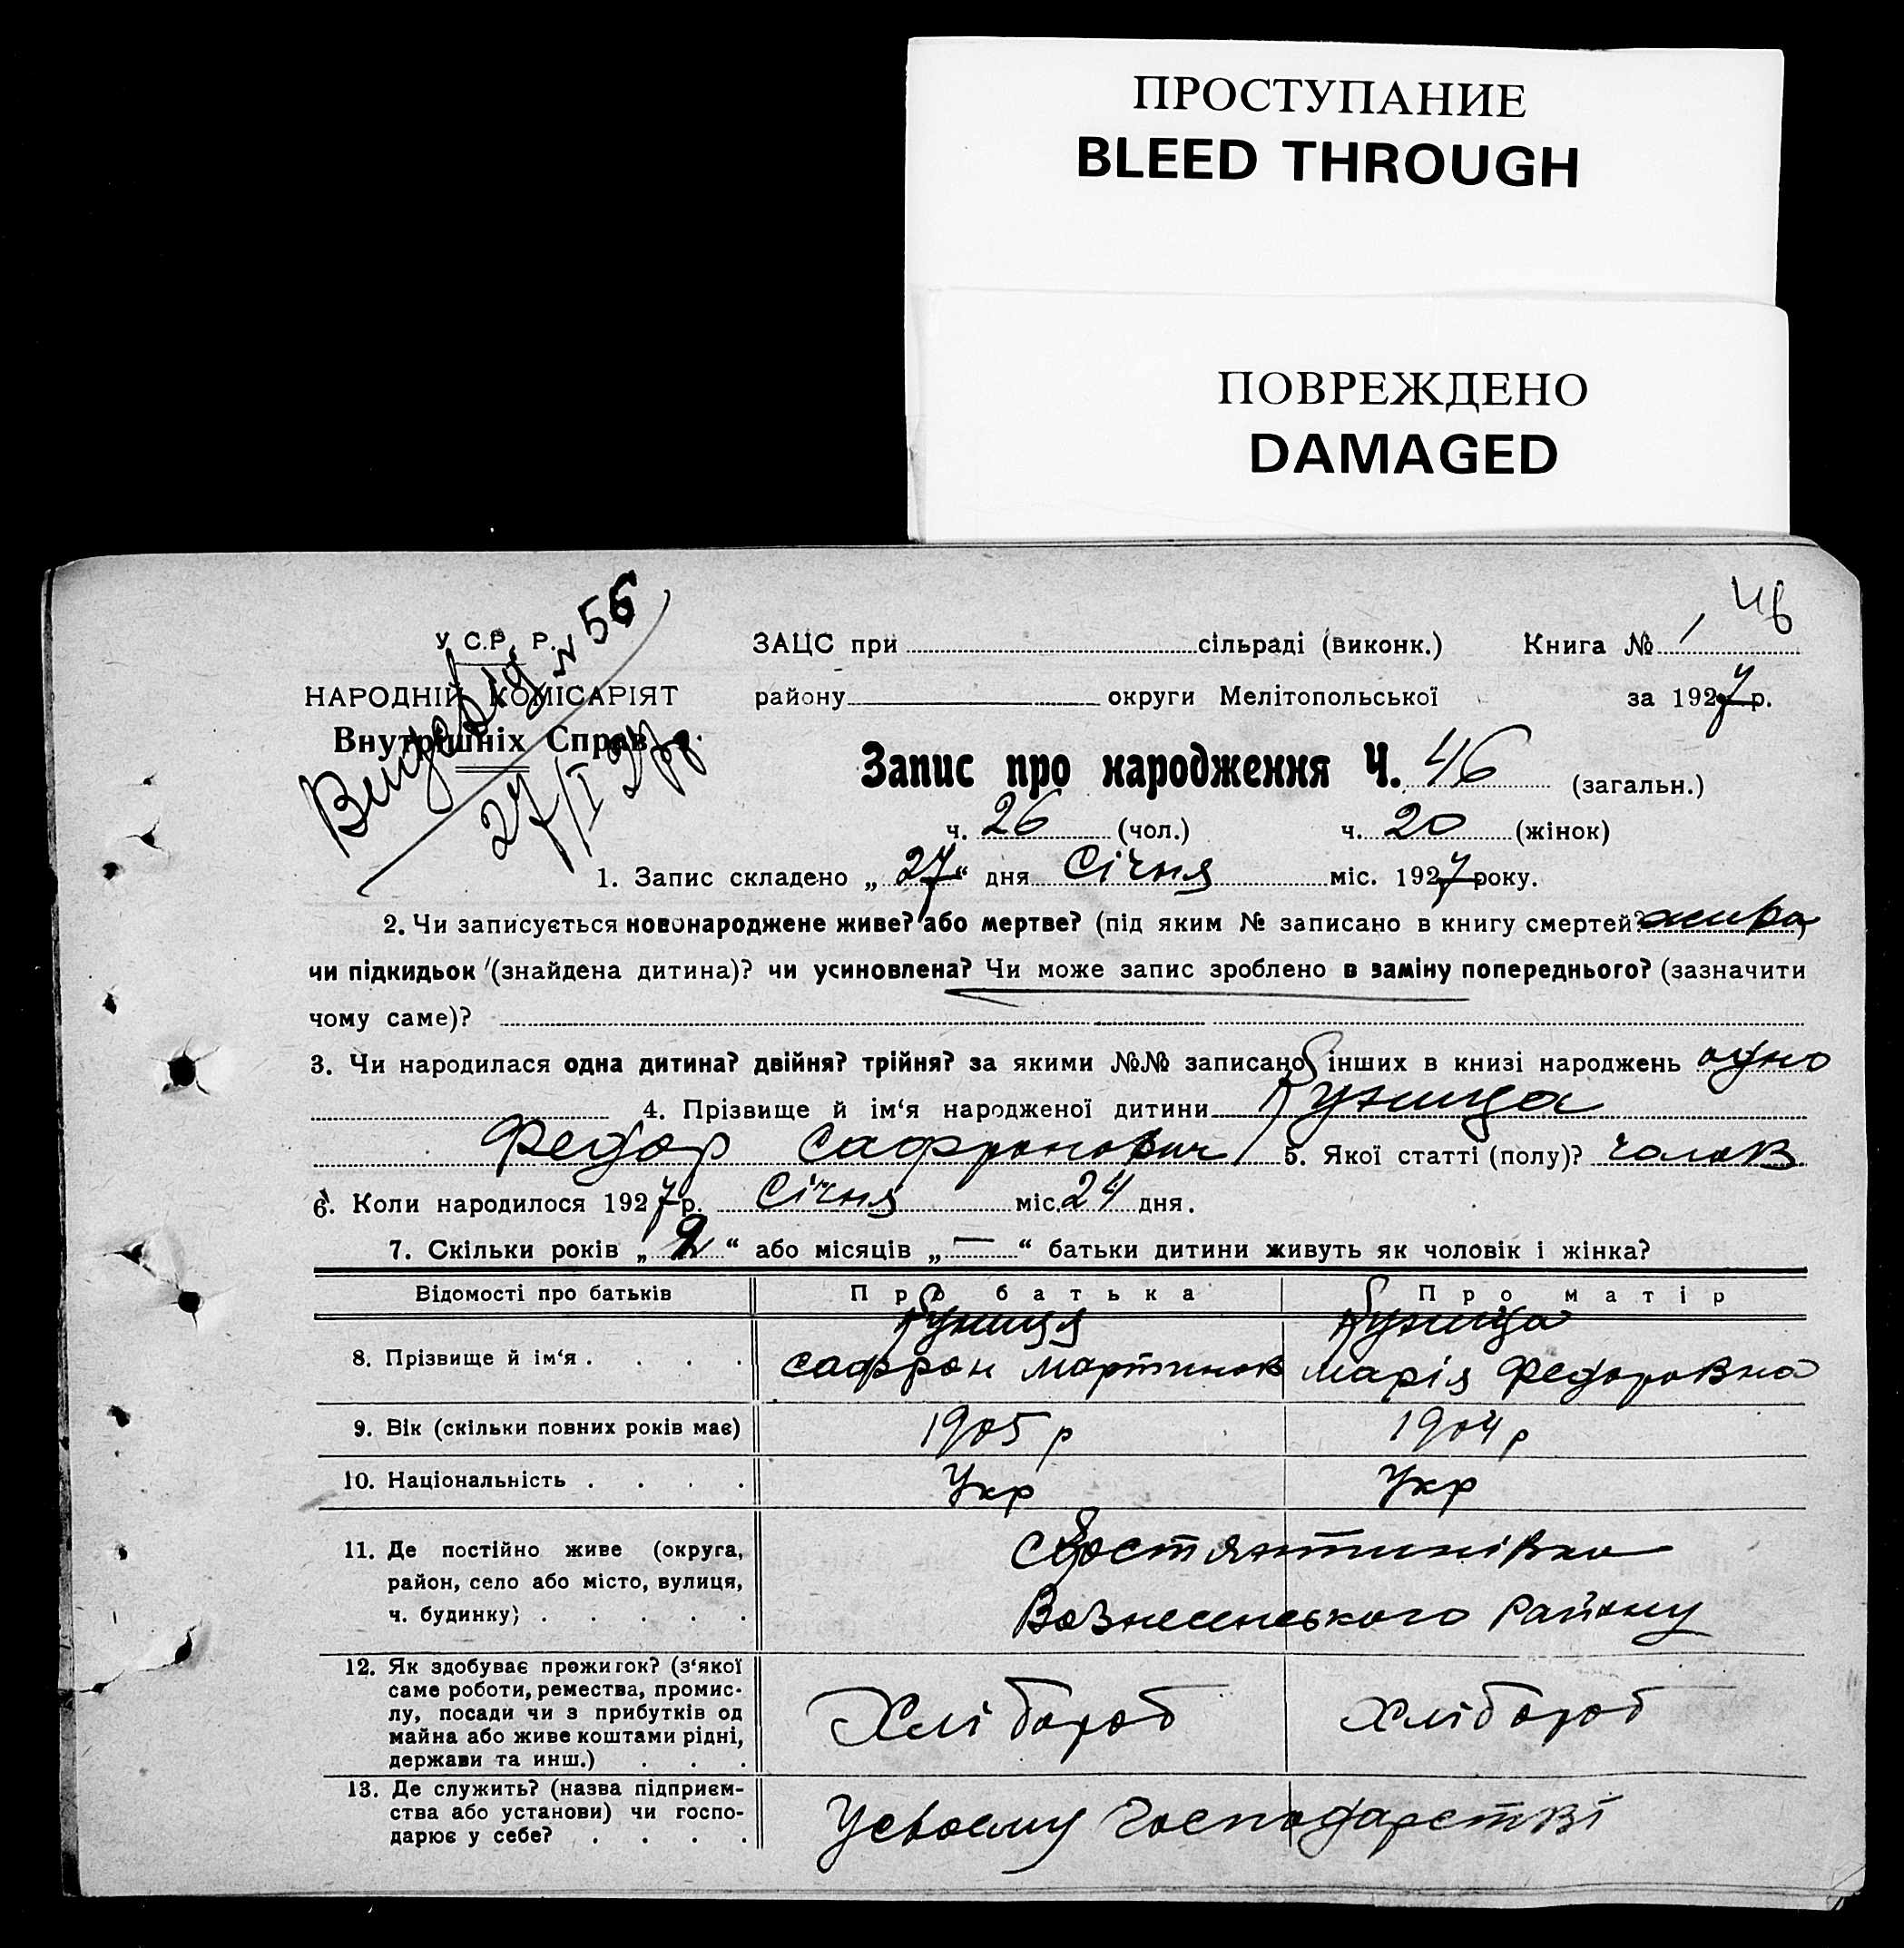 ПРОСТУПАНИЕ
BLEED THROUGH
ПОВРЕЖДЕНО
DAMAGED
46
У С.Р. Р.
НАРОДНІЙ КОМІСАРІЯТ
Внутрішніх Справ
№ 56
27/I 27р
ЗАЦС при сільраді (виконк.) Книга № 1
району округи Мелітопольської за 1927 р.
Запис про народження Ч. 46 (загальн.)
ч. 26 (чол.) ч. 20 (жінок)
1. Запис складено „27“ дня Січня міс. 1927 року.
2. Чи записується новонароджене живе? або мертве? (під яким № записано в книгу смертей? жива
чи підкидьок (знайдена дитина)? чи усиновлена? Чи може запис зроблено в заміну попереднього? (зазначити
чому саме)?
3. Чи народилася одна дитина? двійня? трійня? за якими №№ записано інших в книзі народжень одно
4. Прізвище й ім‘я народженої дитини
Федор Сафронович 5. Якої статті (полу)? чолов
6. Коли народилося 1927 р. Січня міс. 24 дня.
7. Скільки років „2“ або місяців „—“ батьки дитини живуть як чоловік і жінка?
Відомості про батьків Про батька Про матір
8. Прізвище й ім‘я . . . . Сафрон Мартинов Марія Федоровна
9. Вік (скільки повних років має) 1905 р 1904 р
10. Національність . . . . Укр Укр
11. Де постійно живе (округа,
район, село або місто, вулиця,
ч. будинку) . . . . .
Вознесенського Району
12. Як здобуває прожиток? (з‘якої
саме роботи, ремества, промис-
лу, посади чи з прибутків од
майна або живе коштами рідні,
держави та инш.) . . .
Хлібороб Хлібороб
13. Де служить? (назва підприєм-
ства або установи) чи госпо-
дарює у себе? . . . .
Усвоєму господарстві